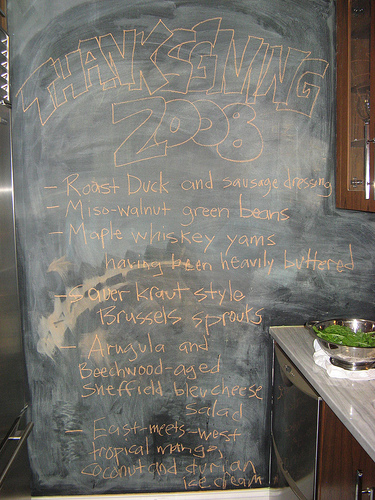 THANKSGIVING
2008
- Roast Duck and sausage dressing
- Miso-walnut green beans
- Maple whiskey yams
having been heavily buttered
- Sauer kraut style
Brussels sprouts
- Arugula and
Beechwood-aged
Sheffield bleu cheese
Salad
- East-meets-west
tropical mango,
coconut and durian
ice cream